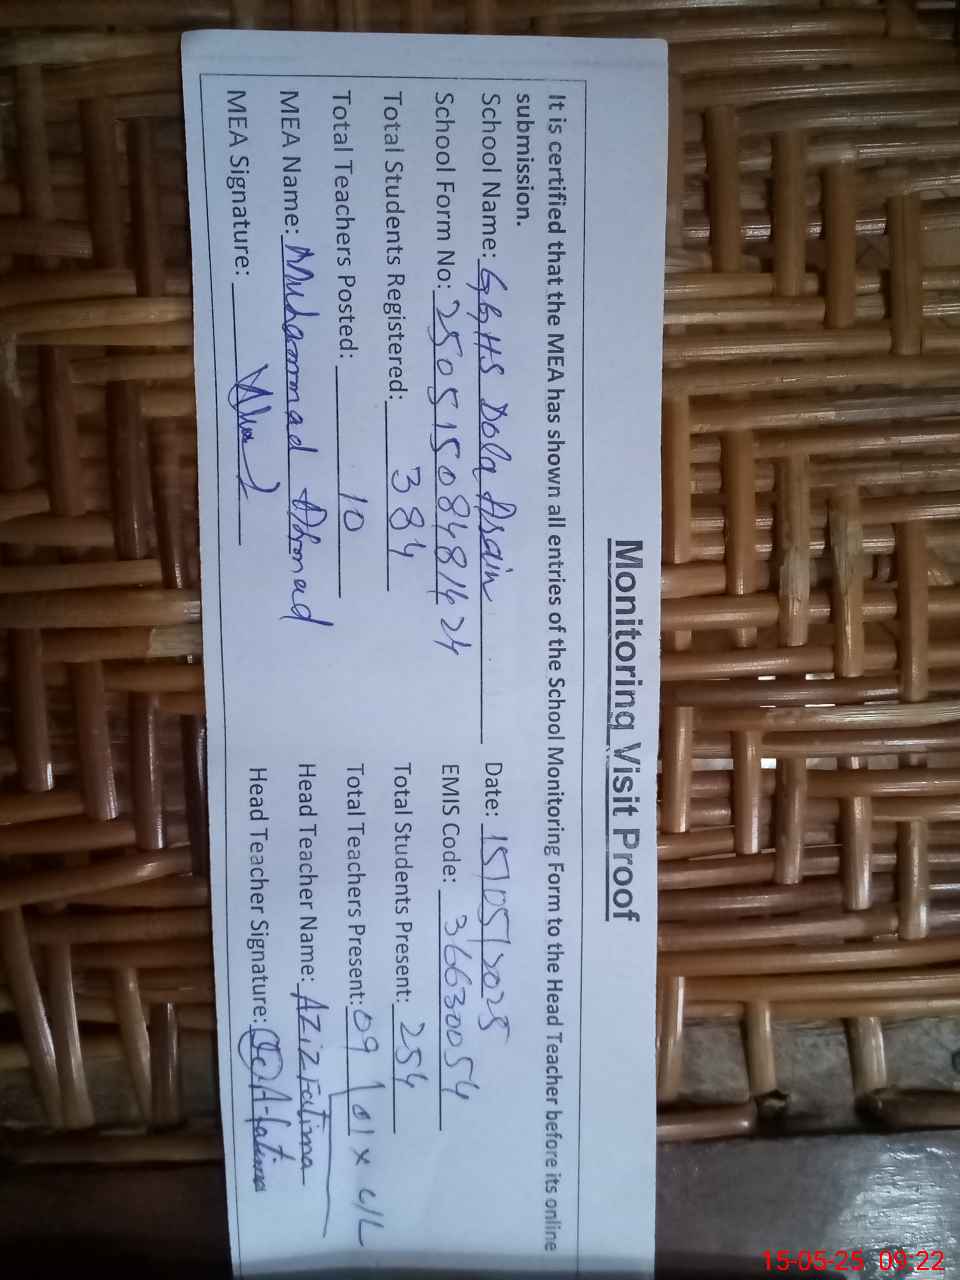 Monitoring Visit Proof
It is certified that the MEA has shown all entries of the School Monitoring Form to the Head Teacher before its online
submission.
School Name: GGHS Dola Arain Date: 15/05/2025
School Form No: 25051508481424 EMIS Code: 36630054
Total Students Registered: 384 Total Students Present: 254
Total Teachers Posted: 10 Total Teachers Present: 09 / 01 x C/L
MEA Name: Muhammad Ahmad Head Teacher Name: AZiZ Fatima
MEA Signature: Head Teacher Signature: A-Fatima
15-05-25 09:22